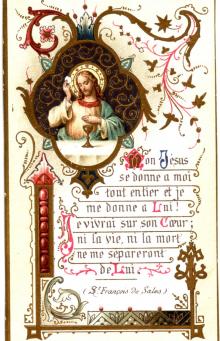 Mon Jésus
se donne a moi
tout entier et je
me donne a Lui !
Je vivrai sur son Cœur ;
ni la vie, ni la mort
ne me sépareront
de Lui
(St François de Sales)